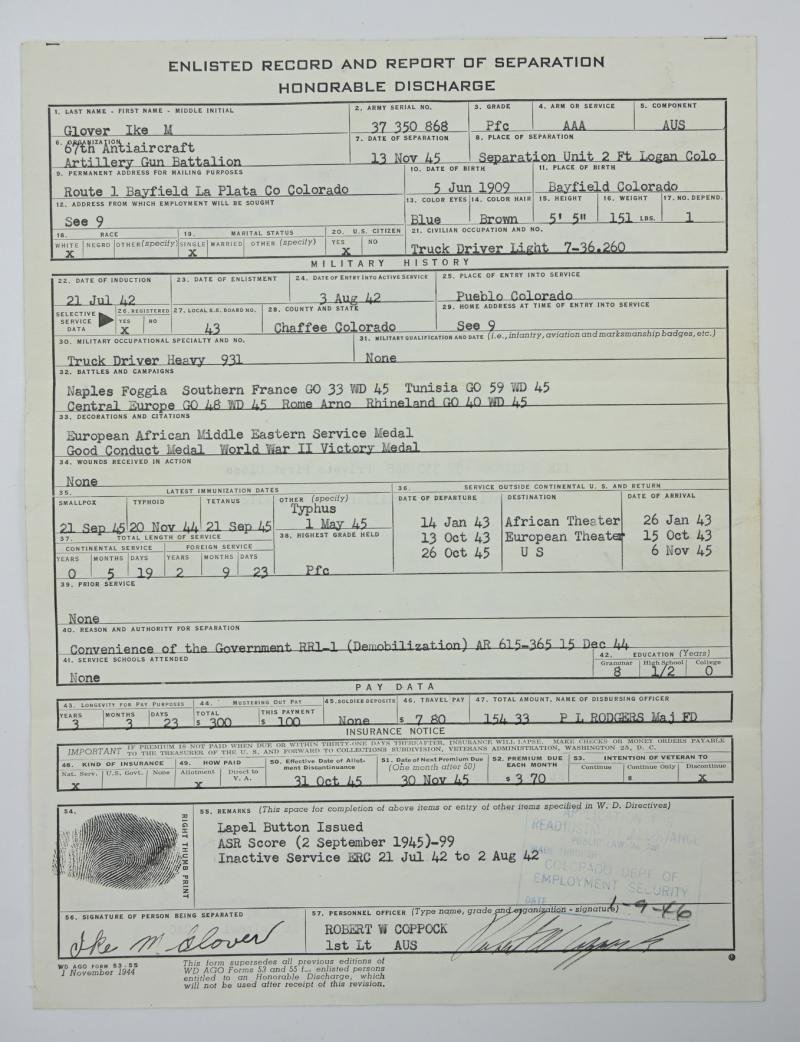 ENLISTED RECORD AND REPORT OF SEPARATION
HONORABLE DISCHARGE
1. LAST NAME - FIRST NAME - MIDDLE INITIAL
2. ARMY SERIAL NO.
3. GRADE
4. ARM OR SERVICE
5. COMPONENT
Glover Ike M
37 350 868
Pfc
AAA
AUS
6. ORGANIZATION
7. DATE OF SEPARATION
8. PLACE OF SEPARATION
67th Antiaircraft
Artillery Gun Battalion
13 Nov 45
Separation Unit 2 Ft Logan Colo
9. PERMANENT ADDRESS FOR MAILING PURPOSES
10. DATE OF BIRTH
11. PLACE OF BIRTH
Route 1 Bayfield La Plata Co Colorado
5 Jun 1909
Bayfield Colorado
12. ADDRESS FROM WHICH EMPLOYMENT WILL BE SOUGHT
13. COLOR EYES
14. COLOR HAIR
15. HEIGHT
16. WEIGHT
17. NO. DEPEND.
See 9
Blue
Brown
5' 5"
151 LBS.
1
18. RACE
19. MARITAL STATUS
20. U.S. CITIZEN
21. CIVILIAN OCCUPATION AND NO.
WHITE NEGRO OTHER (specify) SINGLE MARRIED OTHER (specify) YES NO
X X X
Truck Driver Light 7-36.260
MILITARY HISTORY
22. DATE OF INDUCTION
23. DATE OF ENLISTMENT
24. DATE OF ENTRY INTO ACTIVE SERVICE
25. PLACE OF ENTRY INTO SERVICE
21 Jul 42
3 Aug 42
Pueblo Colorado
SELECTIVE SERVICE DATA
26. REGISTERED
YES NO
X
27. LOCAL S.S. BOARD NO.
28. COUNTY AND STATE
29. HOME ADDRESS AT TIME OF ENTRY INTO SERVICE
43
Chaffee Colorado
See 9
30. MILITARY OCCUPATIONAL SPECIALTY AND NO.
31. MILITARY QUALIFICATION AND DATE (i.e., infantry, aviation and marksmanship badges, etc.)
Truck Driver Heavy 931
None
32. BATTLES AND CAMPAIGNS
Naples Foggia Southern France GO 33 WD 45 Tunisia GO 59 WD 45
Central Europe GO 48 WD 45 Rome Arno Rhineland GO 40 WD 45
33. DECORATIONS AND CITATIONS
European African Middle Eastern Service Medal
Good Conduct Medal World War II Victory Medal
34. WOUNDS RECEIVED IN ACTION
None
35. LATEST IMMUNIZATION DATES
36. SERVICE OUTSIDE CONTINENTAL U. S. AND RETURN
SMALLPOX
TYPHOID
TETANUS
OTHER (specify)
DATE OF DEPARTURE
DESTINATION
DATE OF ARRIVAL
Typhus
21 Sep 45 20 Nov 44 21 Sep 45 1 May 45
14 Jan 43 African Theater 26 Jan 43
13 Oct 43 European Theater 15 Oct 43
26 Oct 45 U S 6 Nov 45
37. TOTAL LENGTH OF SERVICE
38. HIGHEST GRADE HELD
CONTINENTAL SERVICE
FOREIGN SERVICE
YEARS MONTHS DAYS YEARS MONTHS DAYS
0 5 19 2 9 23
Pfc
39. PRIOR SERVICE
None
40. REASON AND AUTHORITY FOR SEPARATION
Convenience of the Government RR1-1 (Demobilization) AR 615-365 15 Dec 44
41. SERVICE SCHOOLS ATTENDED
42. EDUCATION (Years)
Grammar High School College
None
8 1/2 0
PAY DATA
43. LONGEVITY FOR PAY PURPOSES
44. MUSTERING OUT PAY
45. SOLDIER DEPOSITS
46. TRAVEL PAY
47. TOTAL AMOUNT, NAME OF DISBURSING OFFICER
YEARS MONTHS DAYS TOTAL THIS PAYMENT
3 3 23 $ 300 $ 100 None $ 7 80 154 33 P L RODGERS Maj FD
INSURANCE NOTICE
IMPORTANT IF PREMIUM IS NOT PAID WHEN DUE OR WITHIN THIRTY-ONE DAYS THEREAFTER, INSURANCE WILL LAPSE. MAKE CHECKS OR MONEY ORDERS PAYABLE
TO THE TREASURER OF THE U. S. AND FORWARD TO COLLECTIONS SUBDIVISION, VETERANS ADMINISTRATION, WASHINGTON 25, D. C.
48. KIND OF INSURANCE
49. HOW PAID
50. Effective Date of Allotment Discontinuance
51. Date of Next Premium Due (One month after 50)
52. PREMIUM DUE EACH MONTH
53. INTENTION OF VETERAN TO
Nat. Serv. U.S. Govt. None Allotment Direct to V. A.
Continue Continue Only Discontinue
X X 31 Oct 45 30 Nov 45 $ 3 70 $ X
54.
RIGHT THUMB PRINT
55. REMARKS (This space for completion of above items or entry of other items specified in W. D. Directives)
Lapel Button Issued
ASR Score (2 September 1945)-99
Inactive Service ERC 21 Jul 42 to 2 Aug 42
COLORADO DEPT OF
EMPLOYMENT SECURITY
DATE 1-9-46
56. SIGNATURE OF PERSON BEING SEPARATED
57. PERSONNEL OFFICER (Type name, grade and organization - signature)
Ike M Glover
ROBERT W COPPOCK
1st Lt AUS
Robert W Coppock
WD AGO FORM 53-55
1 November 1944
This form supersedes all previous editions of
WD AGO Forms 53 and 55 enlisted persons
entitled to an Honorable Discharge, which
will not be used after receipt of this revision.